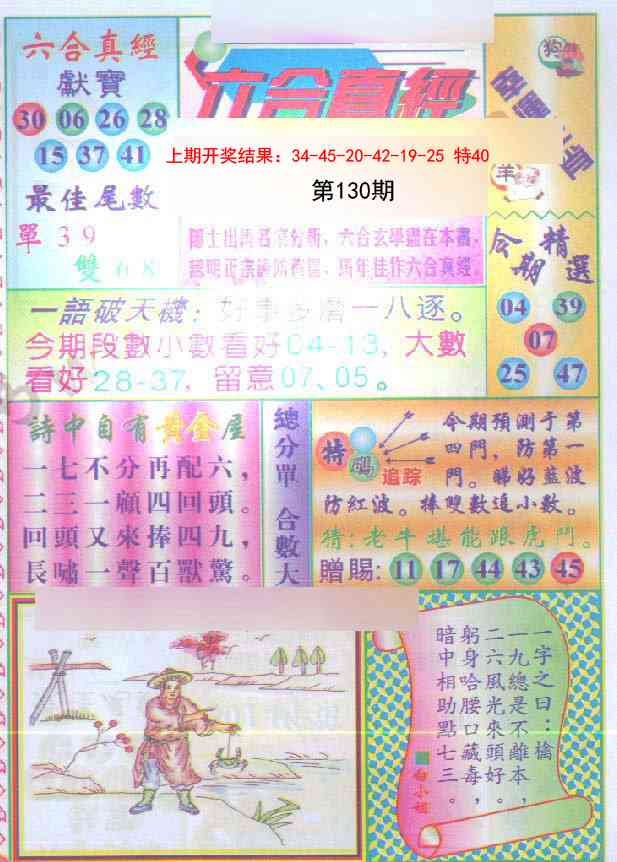 六合真經
獻寶
30 06 26 28
15 37 41
最佳尾數
單 3 9
雙 6 8
六合真經
狗
羊
上期开奖结果：34-45-20-42-19-25 特40
第130期
六合玄學盡在本書，
馬年佳作六合真經。
今期精選
04 39
07
25 47
一語破天機：好事多磨一八逐。
今期段數小數看好04-13，大數
看好28-37，留意07、05。
詩中自有黃金屋
一七不分再配六，
二三一顧四回頭。
回頭又來捧四九，
長嘯一聲百獸驚。
總分單 合數大
特碼
追踪
今期預測于第
四門，防第一
門。睇好藍波
防紅波。捧雙數追小數。
猜：老牛堪能跟虎鬥。
贈賜：11 17 44 43 45
一字之曰：擒
一九總是不離本，
二六風光來頭好，
躬身哈腰口藏毒。
暗中相助點七三。
白小姐